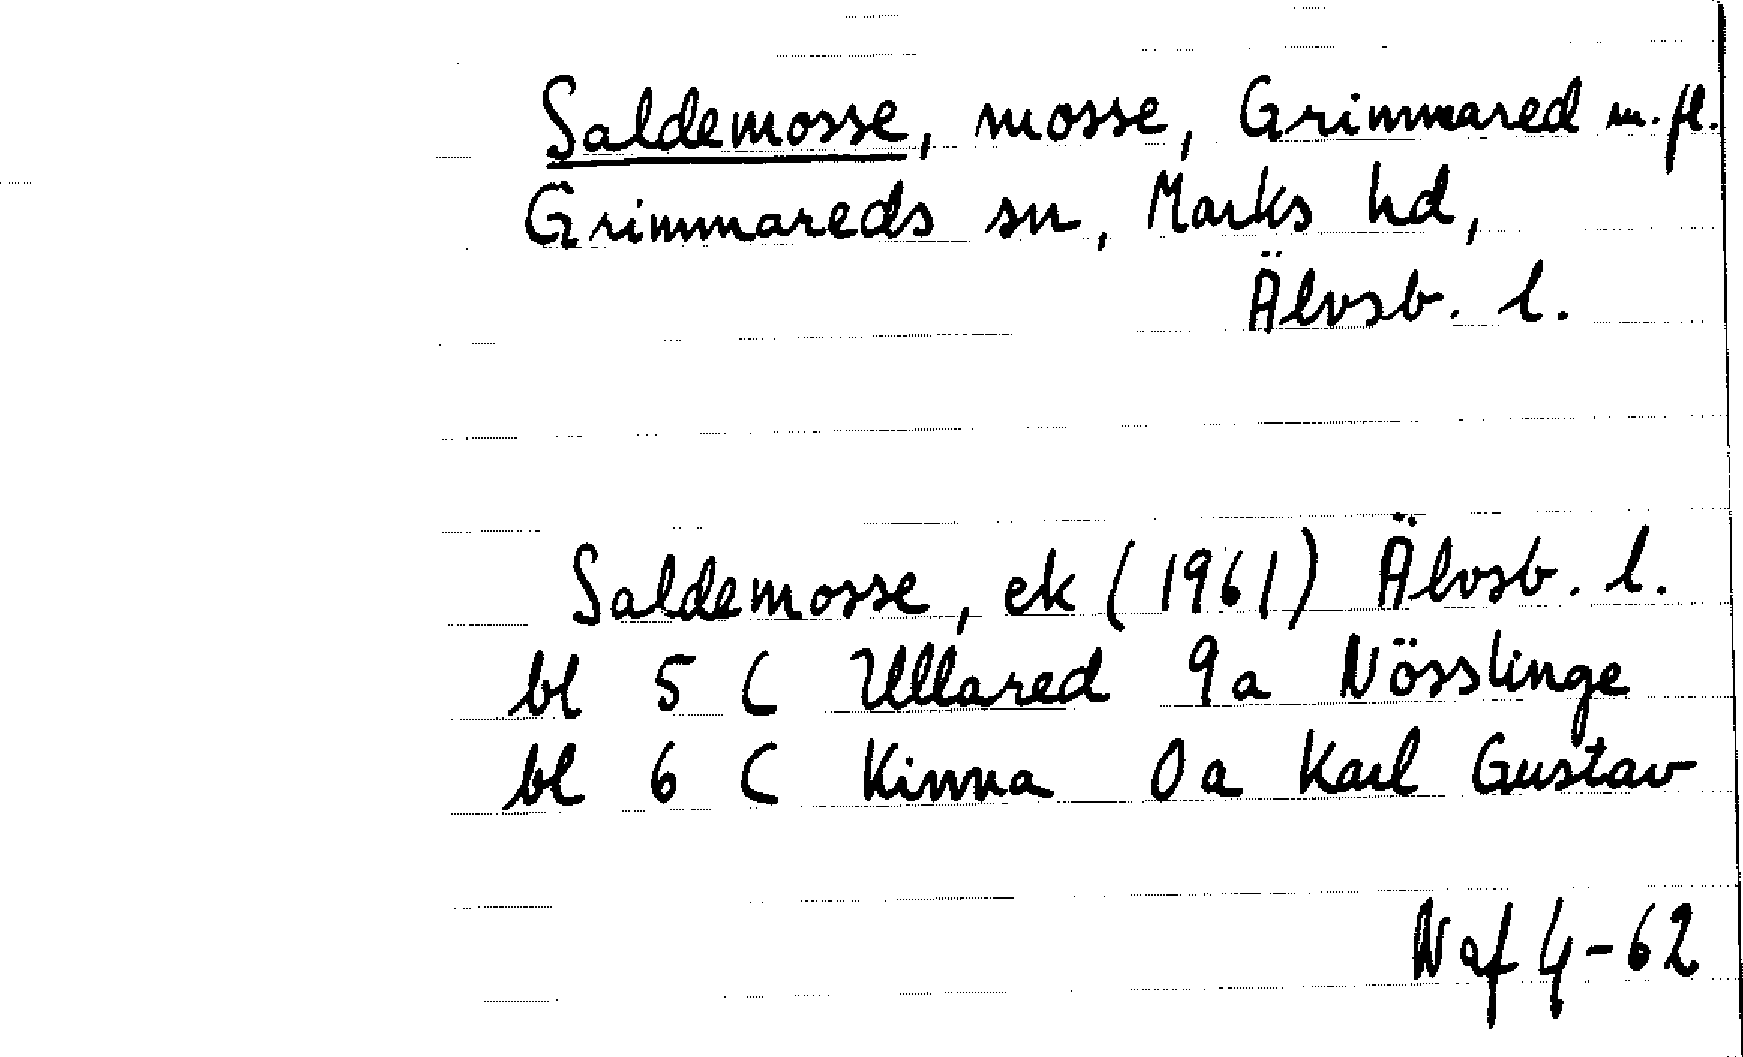 Saldemosse, mosse, Grimmared m. fl.
Grimmareds sn, Marks hd,
Älvsb. l.
Saldemosse, ek (1961) Älvsb. l.
bl 5 C Ullared 9a Nösslinge
bl 6 C Kinna 0a Karl Gustav
Naf 4-62